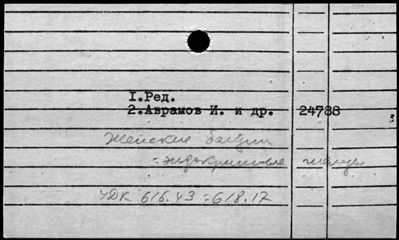 I.Ред.
2.Аврамов И. и др. 24788
Женские болезни
- эндокринные железы
УДК 616.43 : 618.17